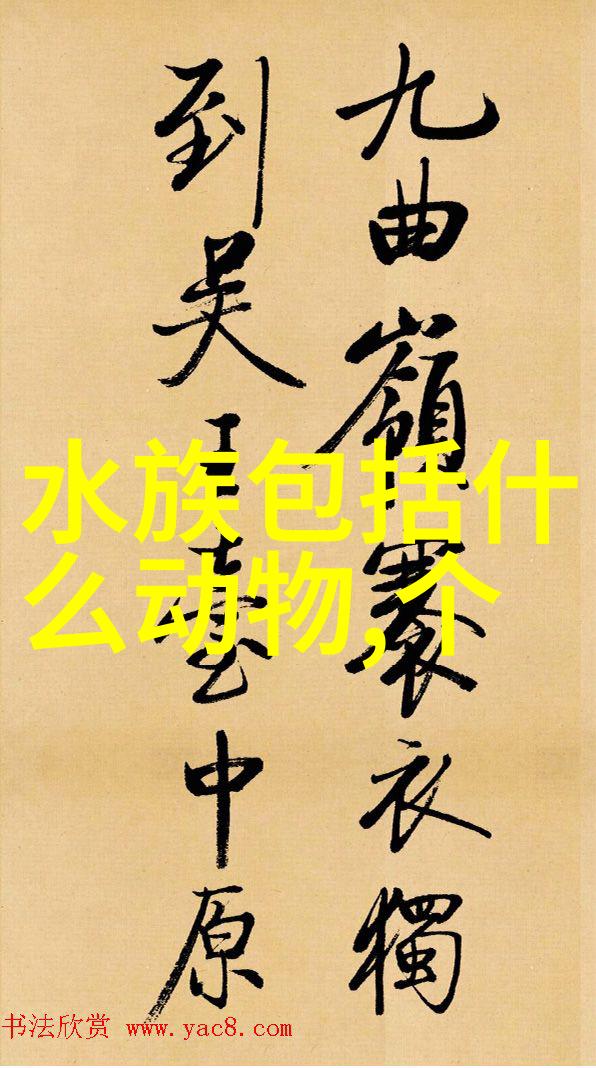 九曲嶺衣獨
到吳王臺中原
水族包括什
么动物,个
书法欣赏 www.yac8.com